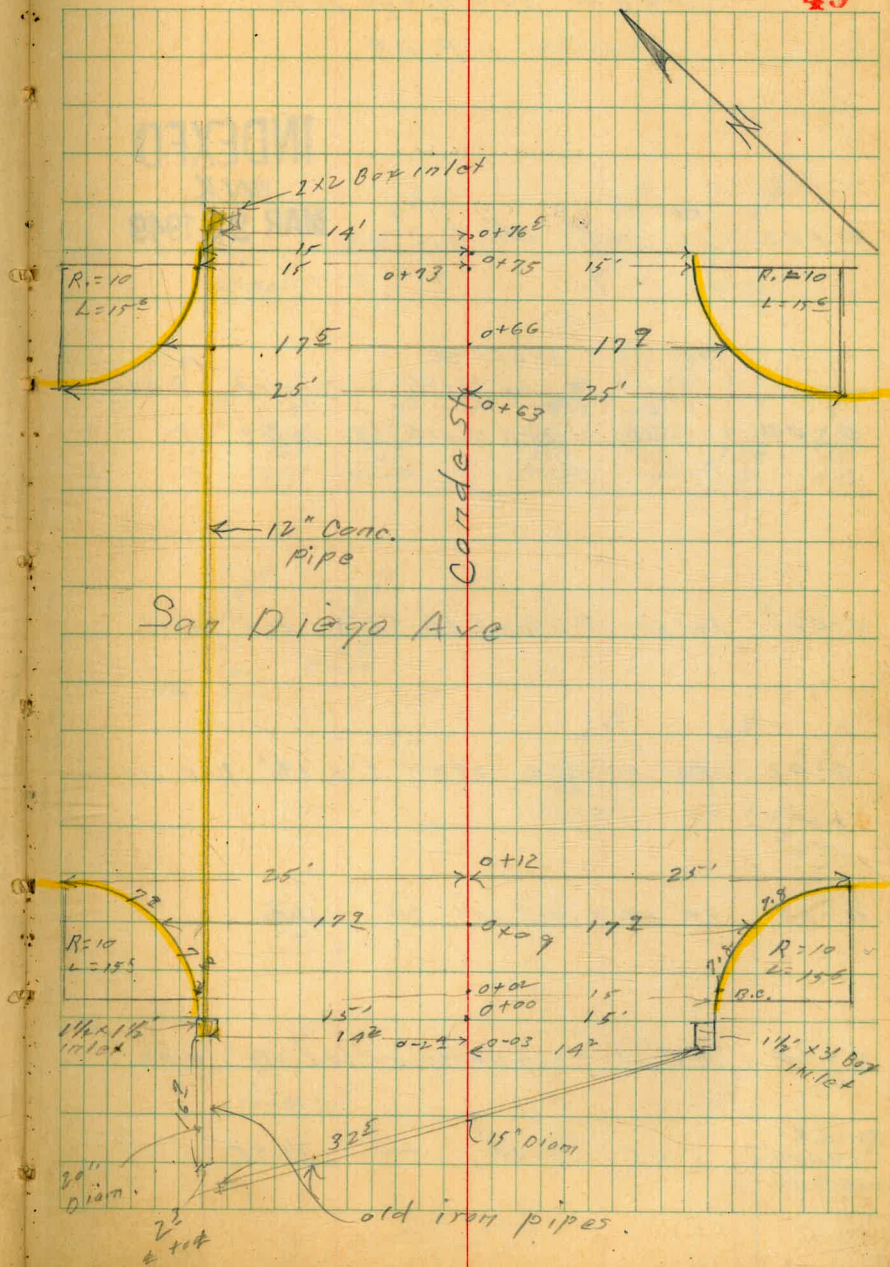 49
N
2x2 Box inlet
14' 0+76⁵
15
15 0+73 0+75 15'
R.=10
L=15⁶
R.=10
L=15⁶
17⁵ 0+66 17⁹
25' 0+63 25'
Conde St
12" Conc.
pipe
San Diego Ave
25' 0+12 25'
7.8 7.8
17⁹ 17⁹
7.8 7.8
R=10
L=15⁵
R=10
L=15⁶
0+02 15 B.C.
15' 0+00 15'
1½ x 1½'
inlet
14² 0-2⁴ 0-03 14²
1½' x 3' Box
inlet
16²
32⁵
15" Diam
20"
Diam.
2³
old iron pipes.